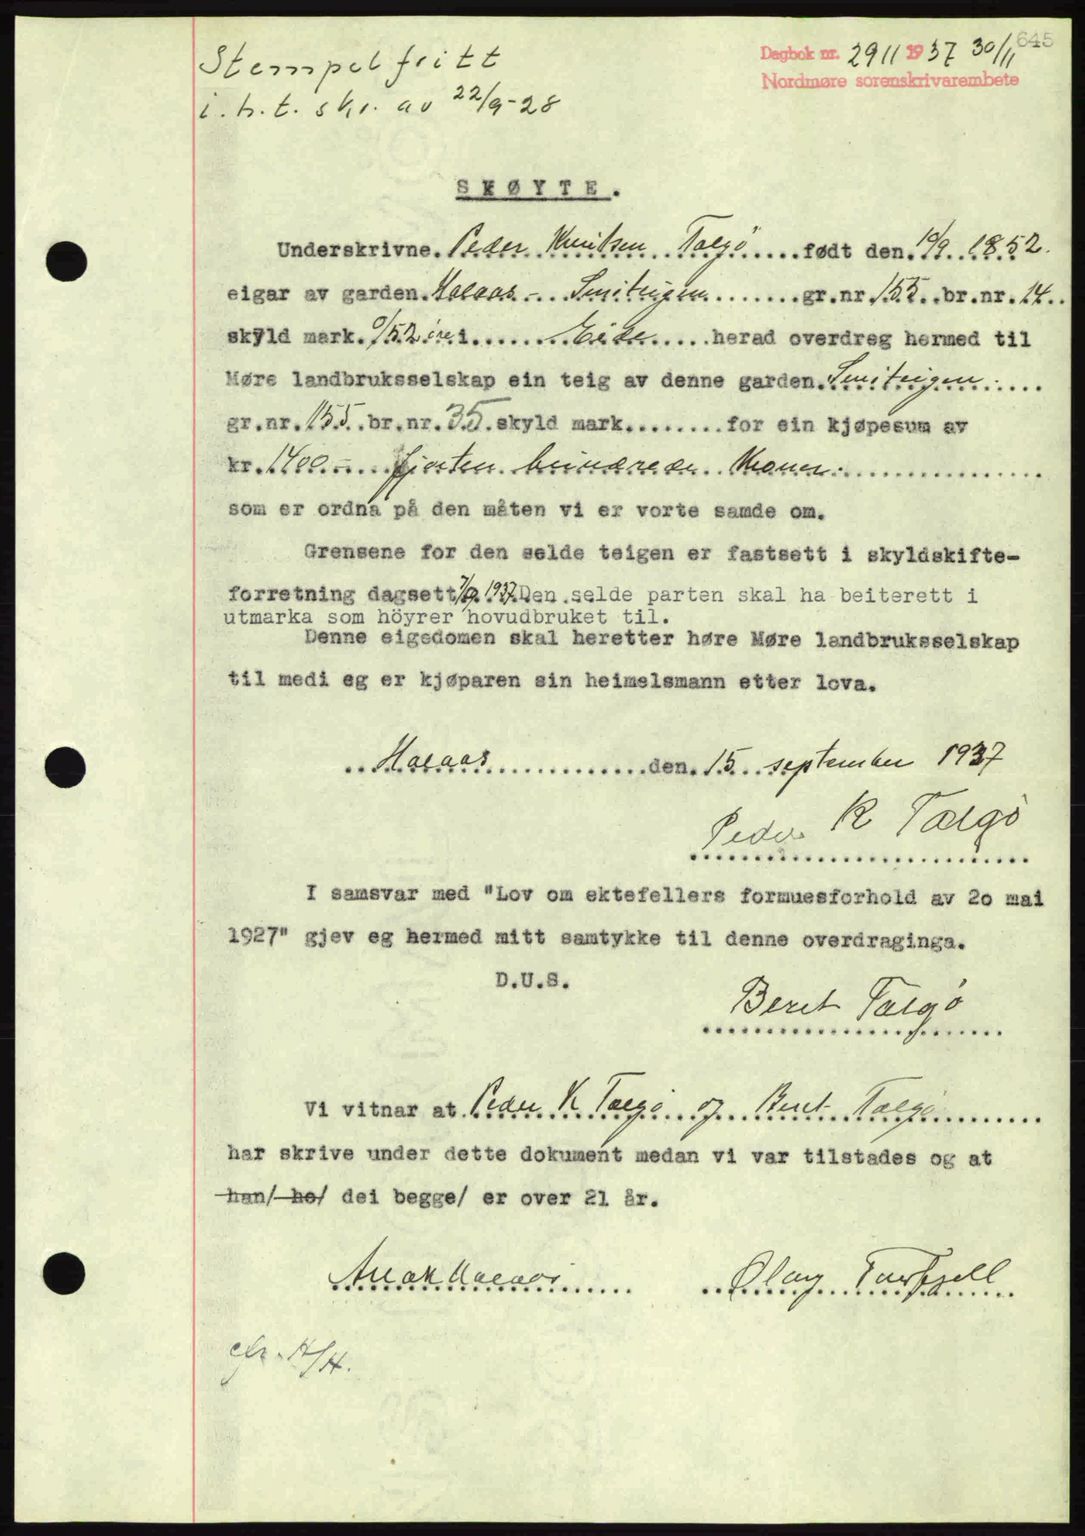 645
Stempelfritt
i.h.t. skr. av 22/9-28
Dagbok nr. 2911 1937 30/11
Nordmøre sorenskrivarembete
SKØYTE.
Underskrivne. Peder Knutsen Talgö født den. 10/9 1852.
eigar av garden. - gr.nr. 155. br.nr. 14.
skyld mark. 0/52 øre i Eide herad overdreg hermed til
Møre landbruksselskap ein teig av denne garden.
gr.nr. 155. br.nr. 35 skyld mark........ for ein kjøpesum av
kr. 1400 - fjorten hundrede Kroner.
som er ordna på den måten vi er vorte samde om.
Grensene for den selde teigen er fastsett i skyldskifte-
forretning dagsett 7/9 1937. Den selde parten skal ha beiterett i
utmarka som höyrer hovudbruket til.
Denne eigedomen skal heretter høre Møre landbruksselskap
til medi eg er kjøparen sin heimelsmann etter lova.
den. 15. september 1937
Peder K Talgö
I samsvar med "Lov om ektefellers formuesforhold av 2o mai
1927" gjev eg hermed mitt samtykke til denne overdraginga.
D.U.S.
Beret Talgö
Vi vitnar at Peder K Talgö og Beret Talgö
har skrive under dette dokument medan vi var tilstades og at
han/ ho/ dei begge/ er over 21 år.
Olav